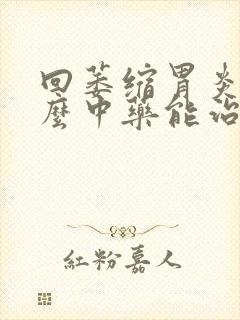 回萎缩胃炎
麼中藥能治
紅粉嘉人